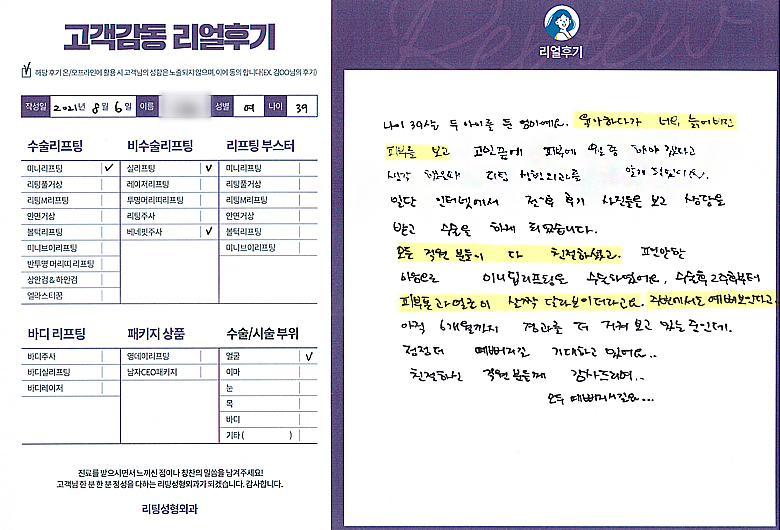 고객감동 리얼후기
해당 후기 온/오프라인에 활용 시 고객님의 성함은 노출되지 않으며, 이에 동의 합니다(EX. 김OO님의 후기)
작성일 2021년 8월 6일 이름 성별 여 나이 39
수술리프팅
미니리프팅 ✓
리팅풀거상
리팅M리프팅
안면거상
볼턱리프팅
미니브이리프팅
반투명 머리띠 리프팅
상안검&하안검
엘라스티꿈
비수술리프팅
실리프팅 ✓
레이저리프팅
투명머리띠리프팅
리팅주사
베네핏주사 ✓
리프팅 부스터
미니리프팅
리팅풀거상
리팅M리프팅
안면거상
볼턱리프팅
미니브이리프팅
바디 리프팅
바디주사
바디실리프팅
바디레이저
패키지 상품
원데이리프팅
남자CEO패키지
수술/시술 부위
얼굴 ✓
이마
눈
목
바디
기타 ( )
진료를 받으시면서 느끼신 점이나 칭찬의 말씀을 남겨주세요!
고객님 한 분 한 분 정성을 다하는 리팅성형외과가 되겠습니다. 감사합니다.
리팅성형외과
리얼후기
나이 39살 두 아이를 둔 엄마예요. 육아하다가 너무 늙어버린
피부를 보고 고민끝에 피부에 해야 겠다고
생각 리팅 성형외과를 알게 되었어요.
일단 인터넷에서 전·후 후기 사진들을 보고 상담을
받고 수술을 하게 되었습니다.
모든 직원 분들이 다 친절하셨고. 편안한
마음으로 미니리프팅을 수술하였어요, 수술후 2주후부터
피부톤과 얼굴이 살짝 달라보이더라고요. 주변에서도 예뻐보인다고.
아직 6개월까지 경과를 더 지켜 보고 있는 중인데.
점점더 예뻐지길 기대하고 있어요..
친절하신 직원 분들께 감사드리며..
모두 예뻐지시길요...